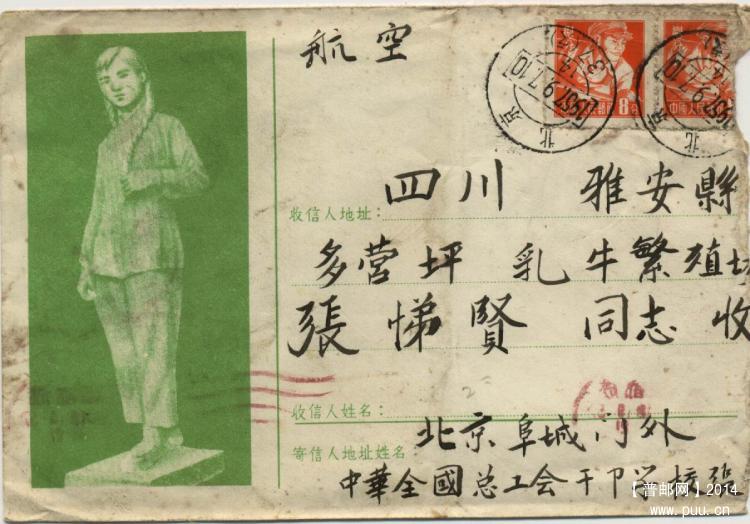 航空
8分
中国人民
1957.9.7.10
北京
1957.9.7.10
北
收信人地址：四川 雅安縣
多营坪 乳牛繁殖场
張悌賢 同志 收
收信人姓名：
寄信人地址姓名：北京阜城门外
中華全國总工会干卩学校張
【普邮网】2014
www.puu.cn